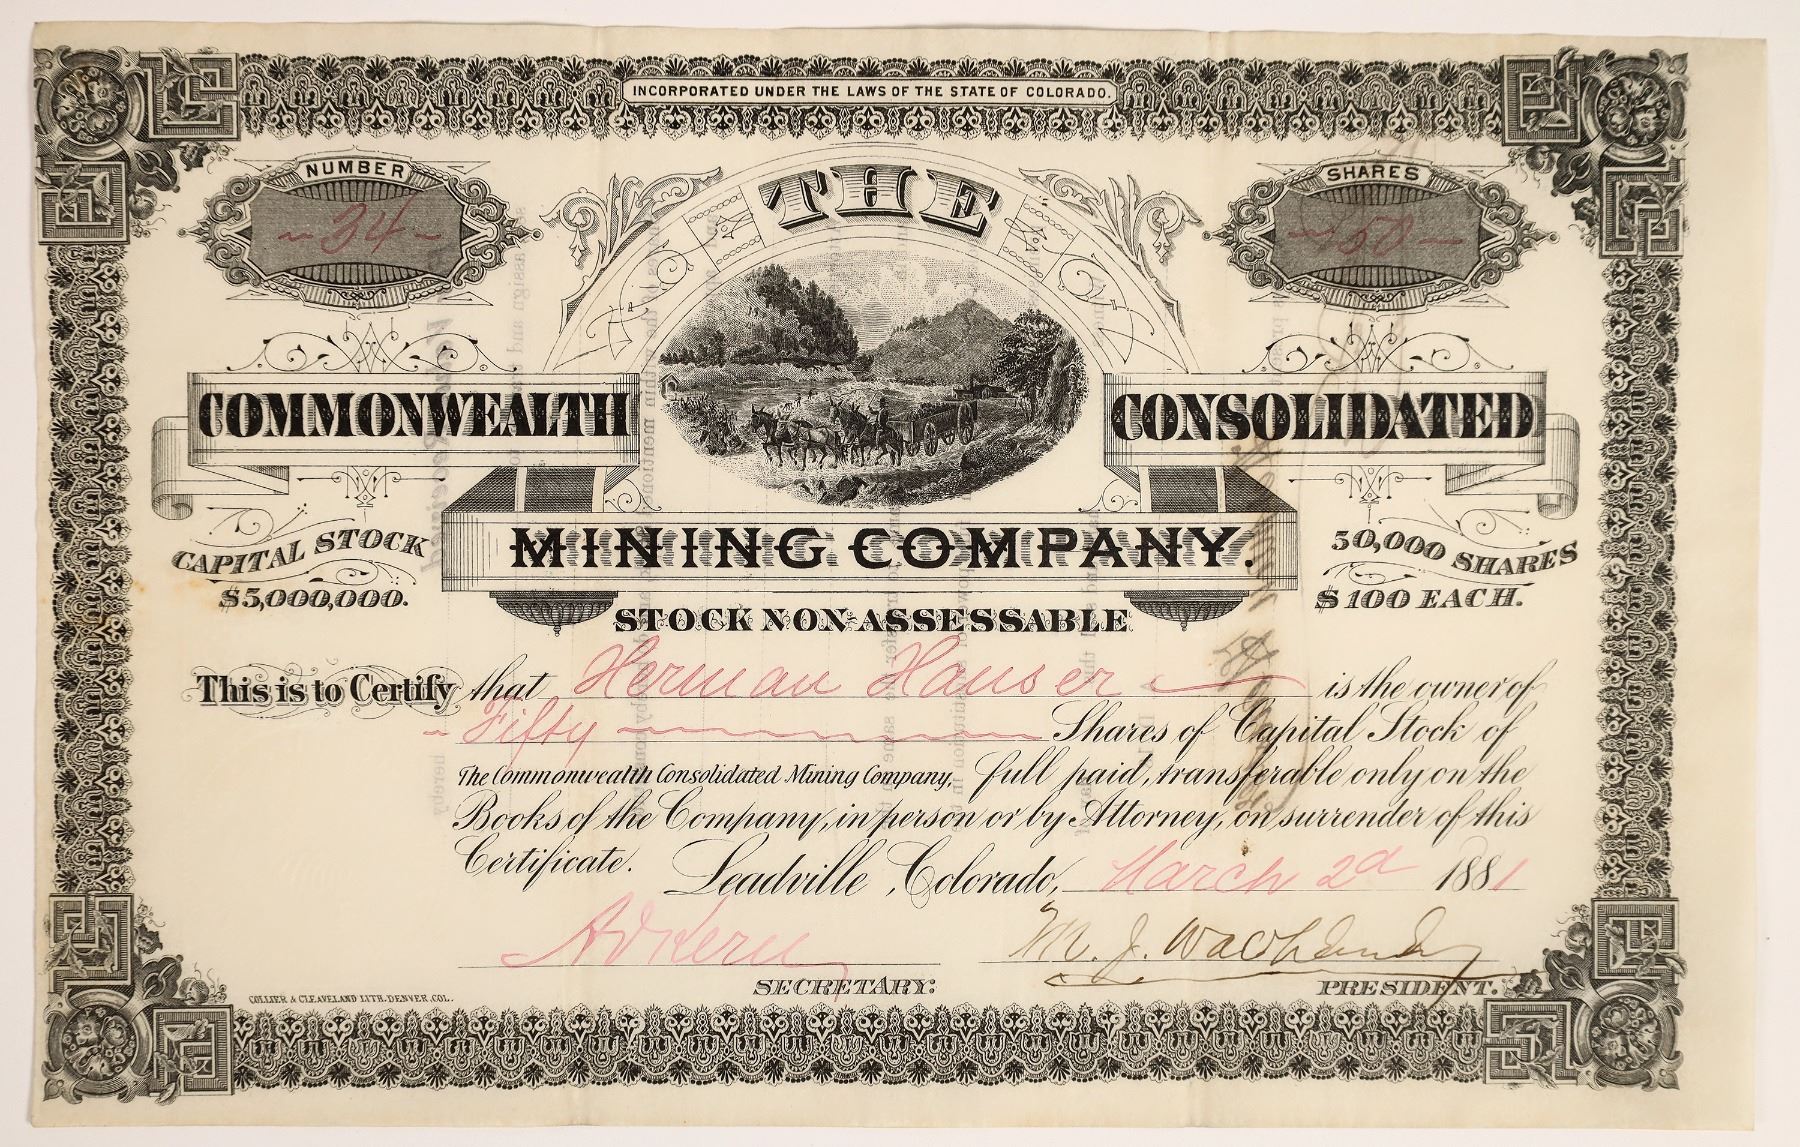 INCORPORATED UNDER THE LAWS OF THE STATE OF COLORADO.
NUMBER
~ 34 ~
SHARES
~ 50 ~
THE
COMMONWEALTH CONSOLIDATED
MINING COMPANY.
CAPITAL STOCK
$5,000,000.
50,000 SHARES
$100 EACH.
STOCK NON-ASSESSABLE
This is to Certify that Herman Hauser is the owner of
Fifty Shares of Capital Stock of
The Commonwealth Consolidated Mining Company, full paid, transferable only on the
Books of the Company, in person or by Attorney, on surrender of this
Certificate. Leadville, Colorado, March 2d 1881
SECRETARY:
M. J.
PRESIDENT.
COLLIER & CLEAVELAND LITH. DENVER, COL.